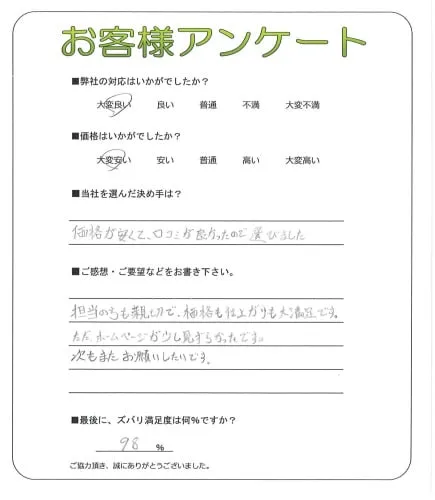 お客様アンケート
■弊社の対応はいかがでしたか?
大変良い 良い 普通 不満 大変不満
■価格はいかがでしたか?
大変安い 安い 普通 高い 大変高い
■当社を選んだ決め手は?
価格が安くて、口コミが良かったので選びました
■ご感想・ご要望などをお書き下さい。
担当の方も親切で、価格も仕上がりも大満足です。
ただ、ホームページが少し見ずらかったです。
次もまたお願いしたいです。
■最後に、ズバリ満足度は何%ですか?
98 %
ご協力頂き、誠にありがとうございました。